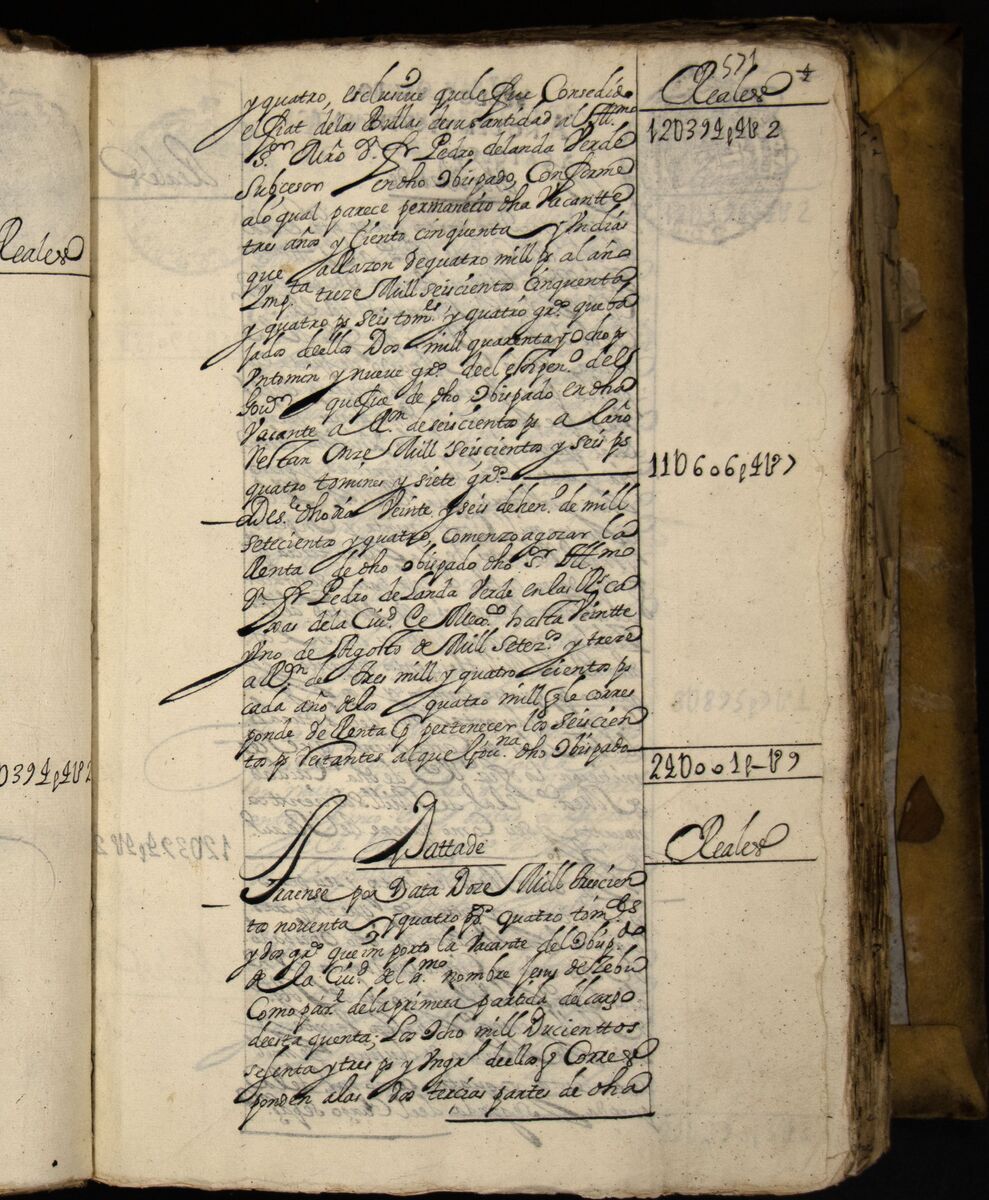 Reales
0394p4t8 2
571
Reales
12U394p4t8 2
y quatro, esclusiue quele fue Consedido
el fiat delas Bullas desu santidad al Illmo
Sr Mro Dn fr Pedro delanda Verde
Subcesor en dho Obispado, Conforme
alo qual parece permanecio dha Vacantte
tres años y Ciento cinquenta y Un dias
que allazon dequatro mill ps al año
Ympta treze Mill seiscientos Cinquenta
y quatro ps seis toms y quatro grs que ba
jados dellos Dos mill quarenta y Ocho ps
Untomin y nueve grs del estipeno del
Gour que fue de dho Obispado en dha
Vacante a Ron de seiscientos ps a laño
restan Onze Mill seiscientos y seis ps
quatro tomines y siete grs
11U606p4t8 7
Desde dho dia Veinte y seis de heno de mill
setecientos y quatro, comenzo agozar la
Renta de dho obispado dho Sr Illmo
Dn fr Pedro de Landa Verde en las Rs ca
xas dela Ciud de Mexco hasta Veintte
y Uno de Agosto de Mill Seteze y treze
a Ron de tres mill y quatrocientos ps
cada año delos quatro mill q le corres
ponde de Renta q pertenecer los seiscien
tos ps restantes al que Gouna dho Obispado
24U001p-t8 9
Dattade
Reales
Traense por Data Doze Mill trescien
tos noventa y quatro ps quatro tomes
y dos grs que importo la Vacante del Obispdo
de la Ciud del Smo nombre Jesus de Zebu
Como pare dela primera partida del cargo
deesta quenta; Los Ocho mill Ducienttos
sesenta y tres ps y Un gro dellos q Corres
ponden alas dos tercias partes de dha